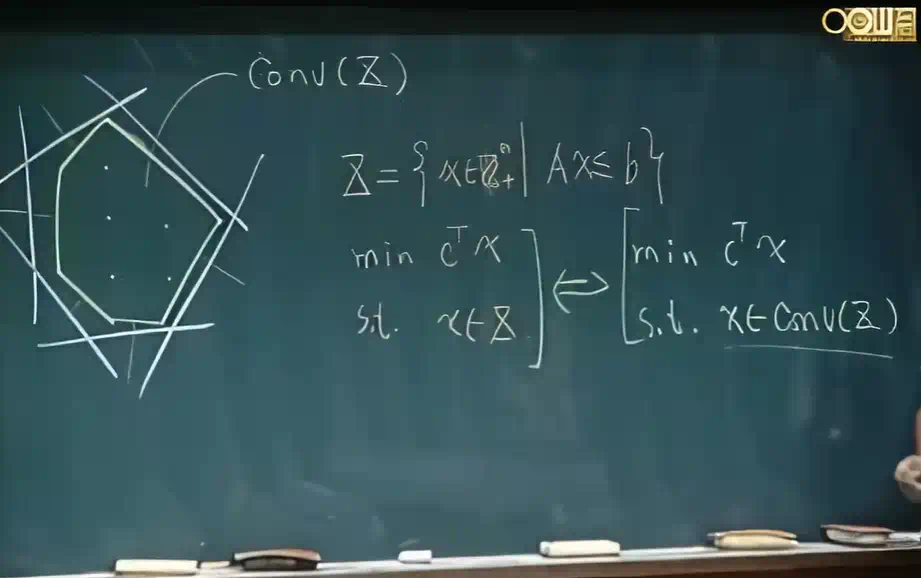 Conv(Z)
Z = { x ∈ Z₊ⁿ | Ax ≤ b }
min cᵀx
s.t. x ∈ Z
⇔
min cᵀx
s.t. x ∈ Conv(Z)